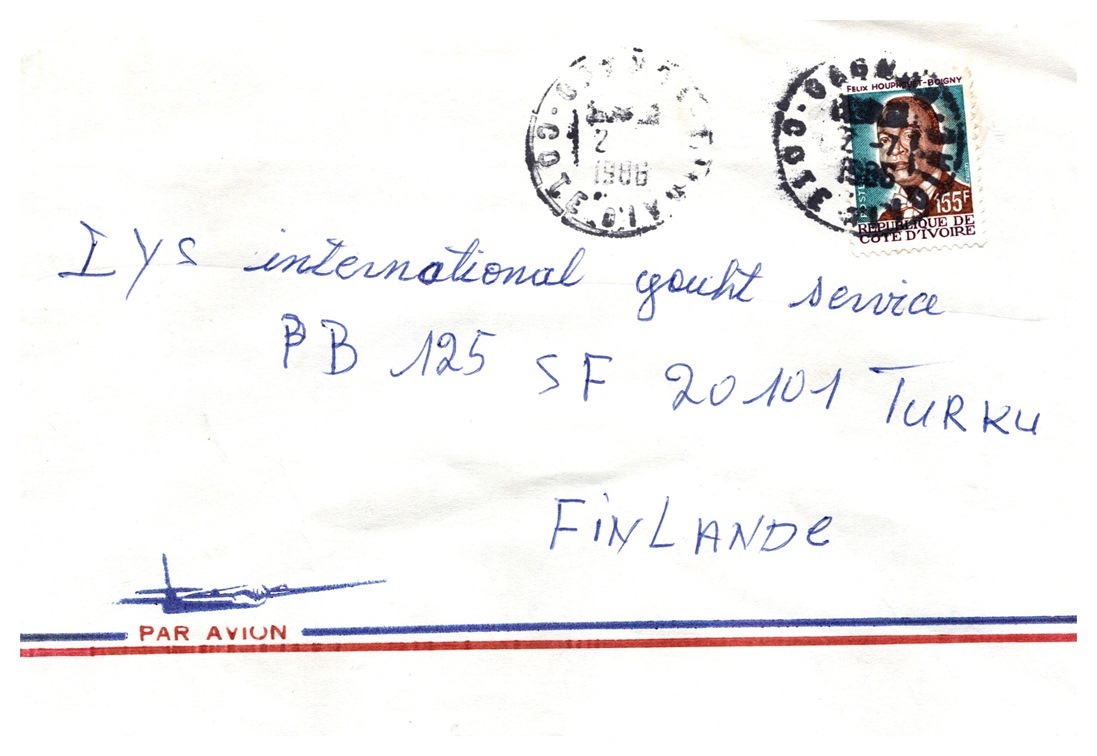 COTE D'IVOIRE
2
1986
COTE D'IVOIRE
2 -7
1986
FELIX HOUPHOUET-BOIGNY
POSTES
155F
REPUBLIQUE DE
COTE D'IVOIRE
IYS international youht service
PB 125 SF 20101 TURKU
FiNLANDe
PAR AVION